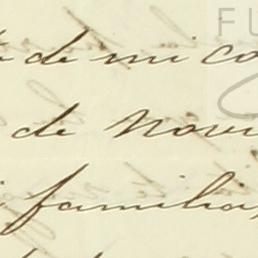 de mi co
FU
de Novi
familia,